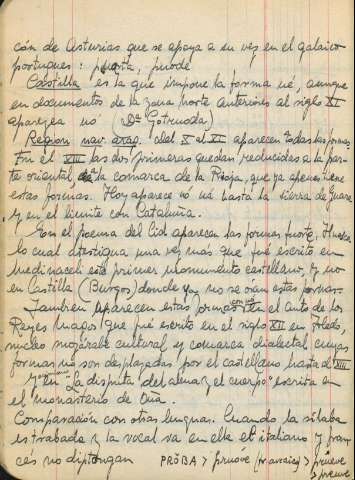 ción de Asturias que se apoya a su vez en el galaico
portugues: puorta, puode
Castilla es la que impone la forma ué, aunque
en documentos de la zona norte anteriores al siglo XI
aparezca uó Sª Gotruoda)
Region nav. arag. del X al XI aparecen todas las formas
En el XIII las dos primeras quedan reducidas a la par-
te oriental de la comarca de la Rioja, que ya apenas tiene
estas formas. Hoy aparece uó uá hasta la sierra de Guara
y en el limite con Cataluña.
En el poema del Cid aparecen las formas fuorte, Huesca
lo cual atestigua una vez más que fué escrito en
Medinaceli este primer monumento castellano, y no
en Castilla (Burgos) donde ya no se oian estas formas.
Tambien aparecen estas formas con uó en el auto de los
Reyes Magos que fué escrito en el siglo XII en Toledo,
nucleo mozárabe cultural y comarca dialectal cuyas
formas no son desplazadas por el castellano hasta el XIII
y en "la disputa del alma y el cuerpo" escrita en
el monasterio de Oña.
Comparación con otras lenguas. Cuando la sílaba
es trabada y la vocal va en ella el italiano y fran-
cés no diptongan PRŎBA > pruóve > prueve
> preuve